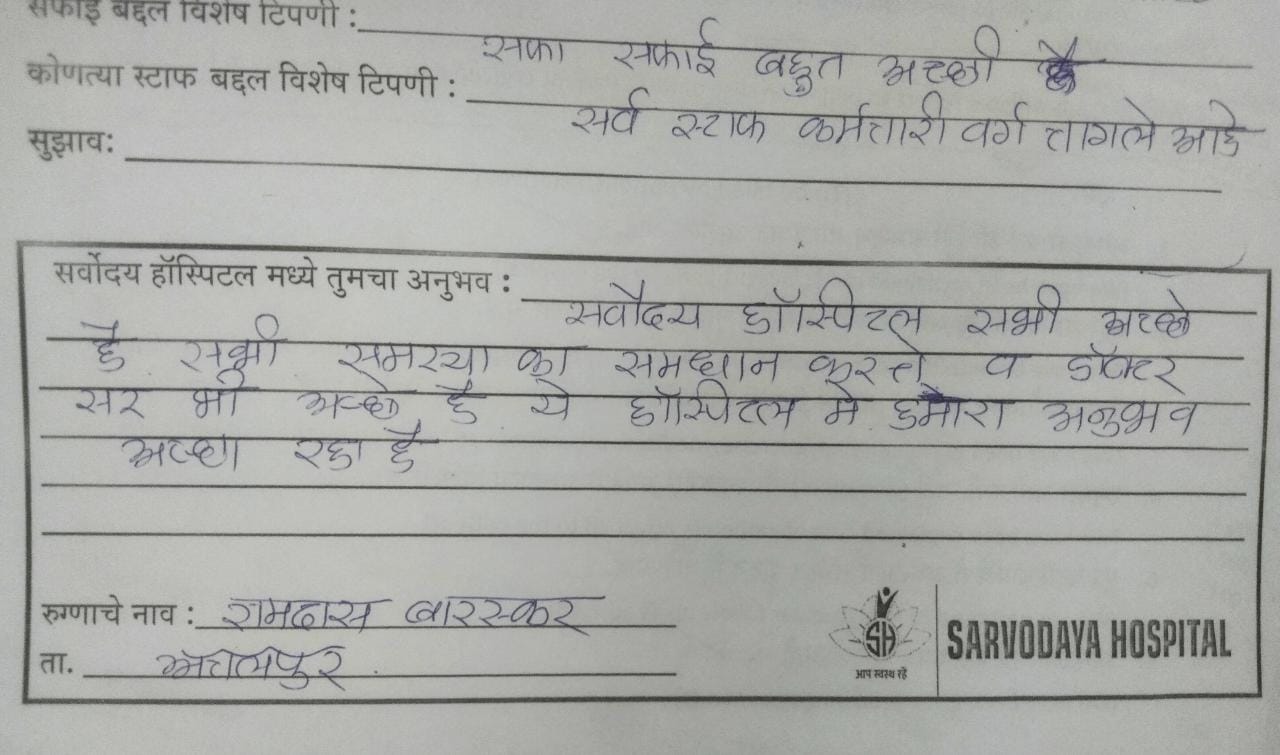 सफाई बद्दल विशेष टिपणी :
सफा सफाई बहुत अच्छी है
कोणत्या स्टाफ बद्दल विशेष टिपणी :
सर्व स्टाफ कर्मचारी वर्ग चागले आहे
सुझाव:
सर्वोदय हॉस्पिटल मध्ये तुमचा अनुभव :
सर्वोदय हॉस्पीटल सभी अच्छे
है सभी समस्या का समधान करते व डॉक्टर
सर भी अच्छे है ये हॉस्पिटल मे हमारा अनुभव
अच्छा रहा है
रुग्णाचे नाव : रामदास बारस्कर
ता. अचलपुर
SH
आप स्वस्थ रहें
SARVODAYA HOSPITAL